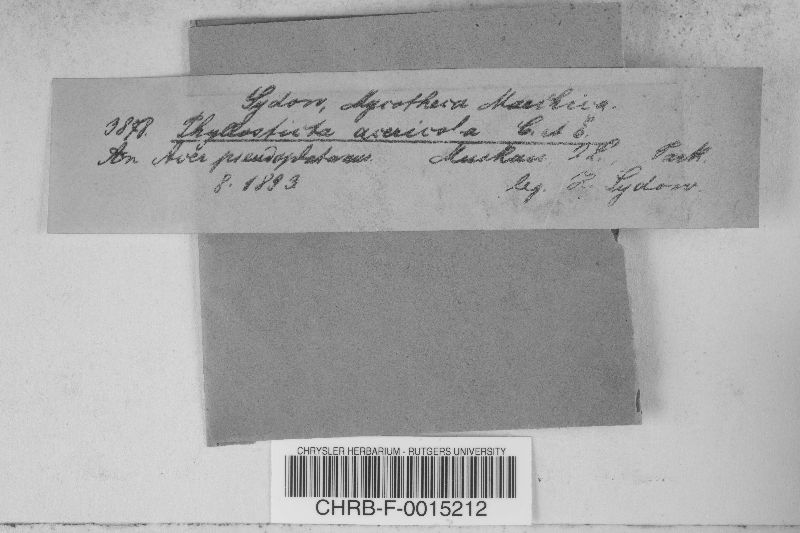 Sydow, Mycotheca Marchica.
3878. Phyllosticta acericola C. et E.
An Acer pseudoplatanus. Muskau Park.
8. 1893
leg. P. Sydow.
CHRYSLER HERBARIUM - RUTGERS UNIVERSITY
CHRB-F-0015212